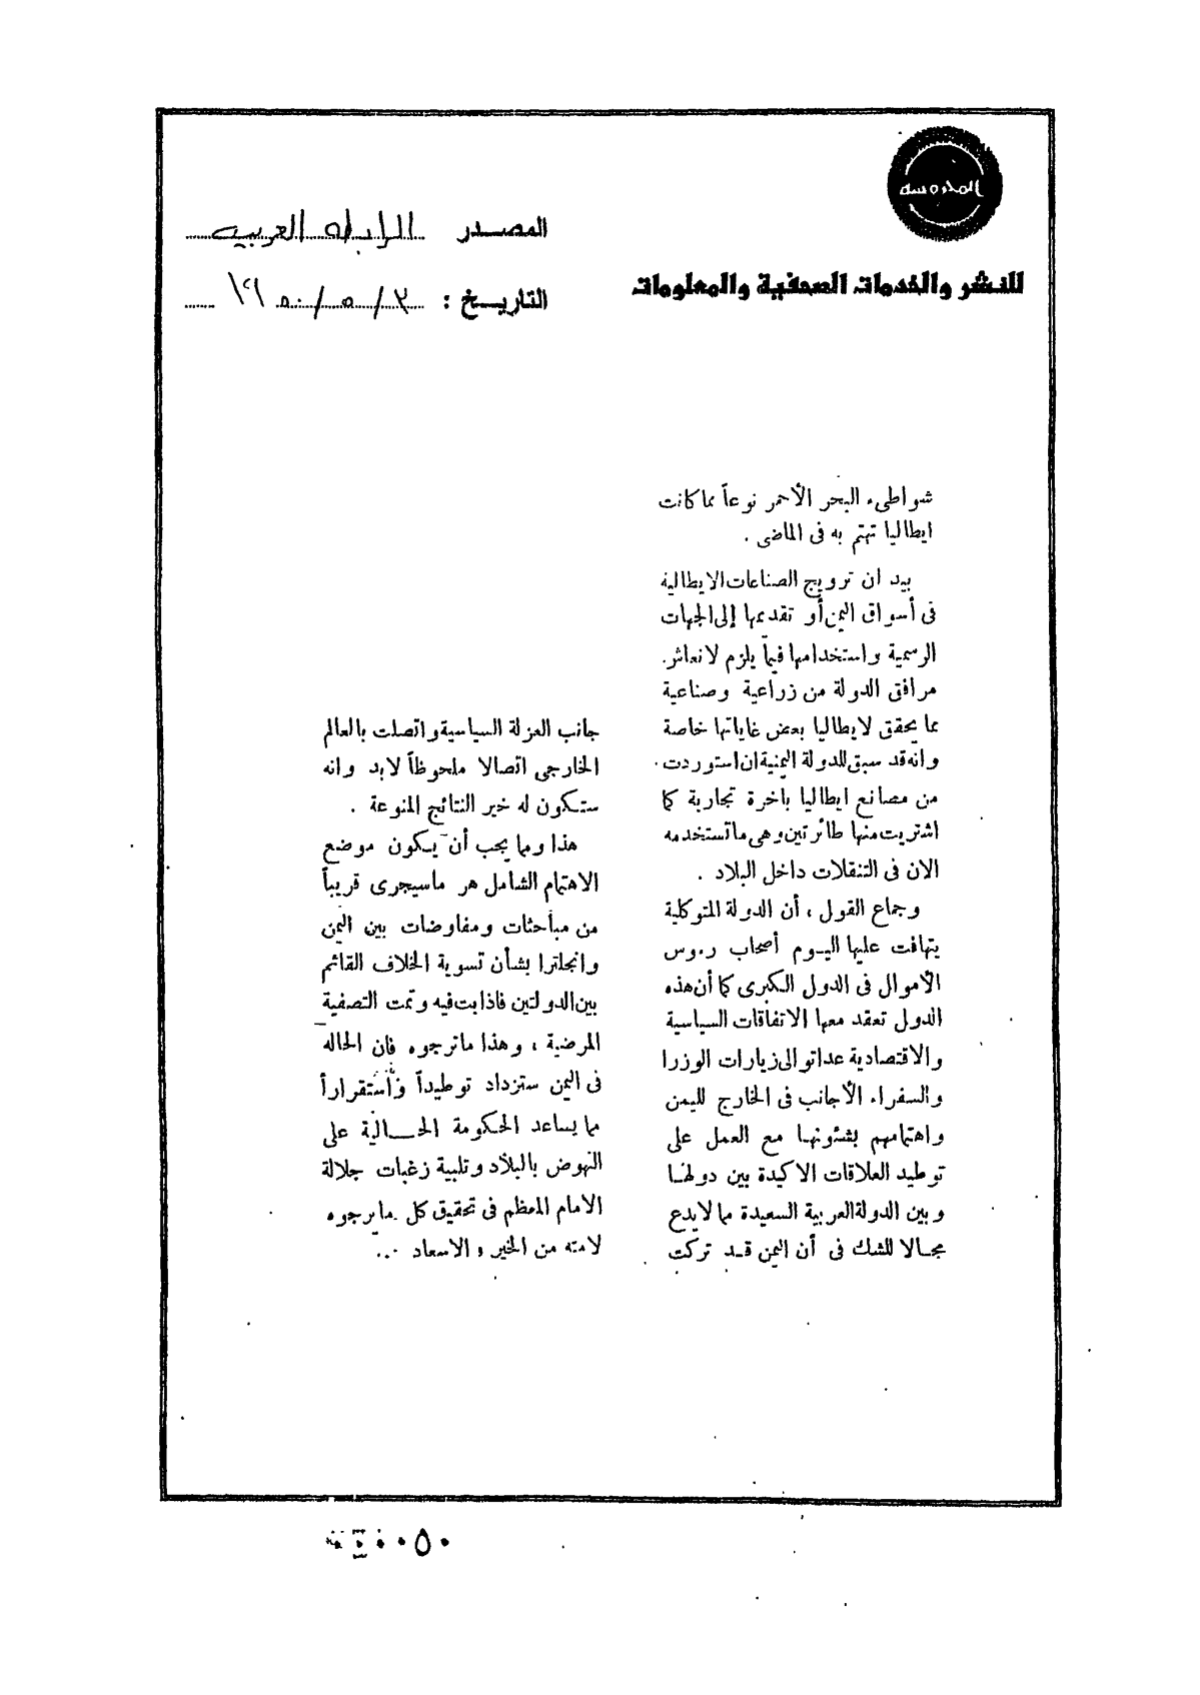 المحروسة
للنشر والخدمات الصحفية والمعلومات
المصدر الرابطه العربيه
التاريخ : ٣ / ٥ / ١٩٥٠
شواطىء البحر الأحمر نوعاً مما كانت
ايطاليا تهتم به فى الماضى .
بيد ان ترويج الصناعات الايطالية
فى أسواق اليمن أو تقديمها إلى الجهات
الرسمية واستخدامها فيما يلزم لانعاش
مرافق الدولة من زراعية وصناعية
مما يحقق لايطاليا بعض غاياتها خاصة
وانه قد سبق للدولة اليمنية ان استوردت
من مصانع ايطاليا باخرة تجارية كما
اشتريت منها طائرتين وهى ما تستخدمه
الان فى التنقلات داخل البلاد .
وجماع القول ، أن الدولة المتوكلية
يتهافت عليها اليوم أصحاب رءوس
الأموال فى الدول الكبرى كما أن هذه
الدول تعقد معها الاتفاقات السياسية
والاقتصادية عدا توالى زيارات الوزرا
والسفراء الأجانب فى الخارج لليمن
واهتمامهم بشئونها مع العمل على
توطيد العلاقات الاكيدة بين دولها
وبين الدولة العربية السعيدة مما لا يدع
مجالا للشك فى أن اليمن قد تركت
جانب العزلة السياسية واتصلت بالعالم
الخارجى اتصالا ملحوظاً لابد وانه
ستكون له خير النتائج المنوعة .
هذا ومما يجب أن يكون موضع
الاهتمام الشامل هر ماسيجرى قريباً
من مباحثات ومفاوضات بين اليمن
وانجلترا بشأن تسوية الخلاف القائم
بين الدولتين فاذا بت فيه وتمت التصفية
المرضية ، وهذا ما ترجوه فان الحاله
فى اليمن ستزداد توطيداً واستقراراً
مما يساعد الحكومة الحالية على
النهوض بالبلاد وتلبية رغبات جلالة
الامام المعظم فى تحقيق كل ما يرجوه
لامته من الخير والاسعاد ...